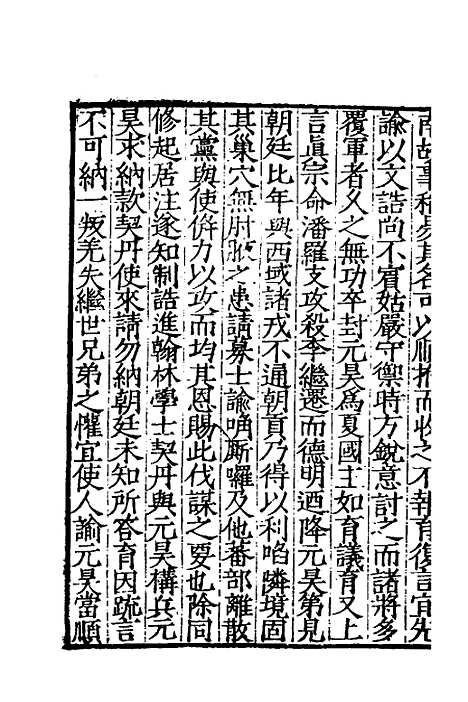 南故事稍易其名可以順撫而收之不報育復言宜先
諭以文誥尚不賓姑嚴守禦時方銳意討之而諸將多
覆軍者久之無功卒封元昊爲夏國主如育議育又上
言眞宗命潘羅支攻殺李繼遷而德明迺降元昊第見
朝廷比年與西域諸戎不通朝貢乃得以利啗隣境固
其巢穴無肘腋之患請募士諭唃厮囉及他蕃部離散
其黨與使倂力以攻而均其恩賜此伐謀之要也除同
修起居注遂知制誥進翰林學士契丹與元昊構兵元
昊求納款契丹使來請勿納朝廷未知所荅育因疏言
不可納一叛羌失繼世兄弟之懽宜使人諭元昊當順